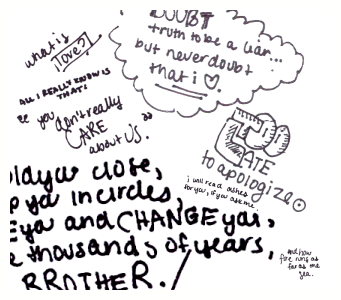 DOUBT
truth to be a liar...
but never doubt
that i ♡.
what is
love?
ALL I REALLY KNOW IS
THAT:
you
don't really
CARE
about us.
LATE
to apologize
i will read ashes
for you, if you ask me.
close,
ya in circles,
ya and CHANGE you,
thousands of years,
BROTHER.
and now
fire runs as
far as the
sea.